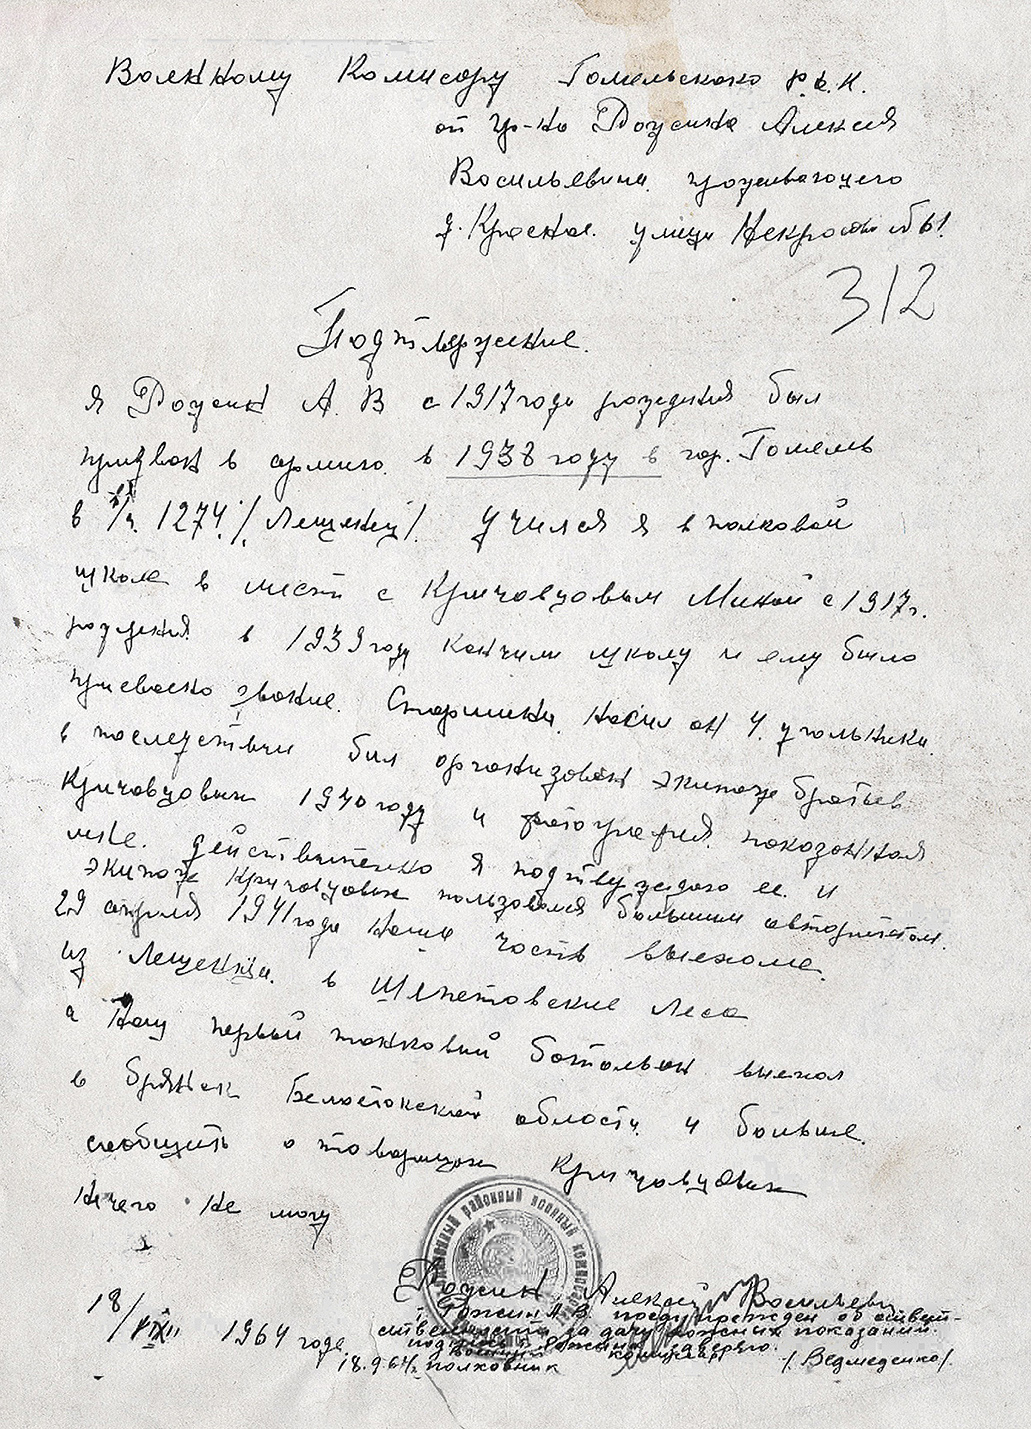 Военному Комисору Гомельского р.в.к.
от гр-на Рожина Алексея
Васильевича проживающего
д. Красное. улица Некрасова №61.
312
Подтвержение.
я Рожин А. В с 1917 года рождения был
призван в армию. в 1938 году в гор. Гомель
в в/ч. 1274 /Лещинец/. Учился я в полковой
школе в месте с Кричевцовым Миной с 1917г.
рождения. в 1939 году кончили школу и ему было
присвоено звание. Старшины. Носил он 4. угольника.
в последствии был организован экипаж братьев
Кричевцовых 1940 году и фотография показанная
мне. действительно я подтверждаю ее. и
экипаж Кричевцовых пользовался большим авторитетом.
29 апреля 1941 года наша часть выехала.
из Лещенца. в Шепетовские Леса
а Наш первый танковый ботальон выехал
в Брянск Белостокской области. и больше.
сообщить о товарищах Кричевцовых
ничего не могу
Рожин Алексей Васильевич
18/ 1964 года.
Рожин А.В. предупрежден об ответ-
ственности за дачу ложных показаний.
подпись Рожина заверяю.
Военный комиссар
18.9.64г. полковник /Ведмеденко/.
районный военный комиссариат